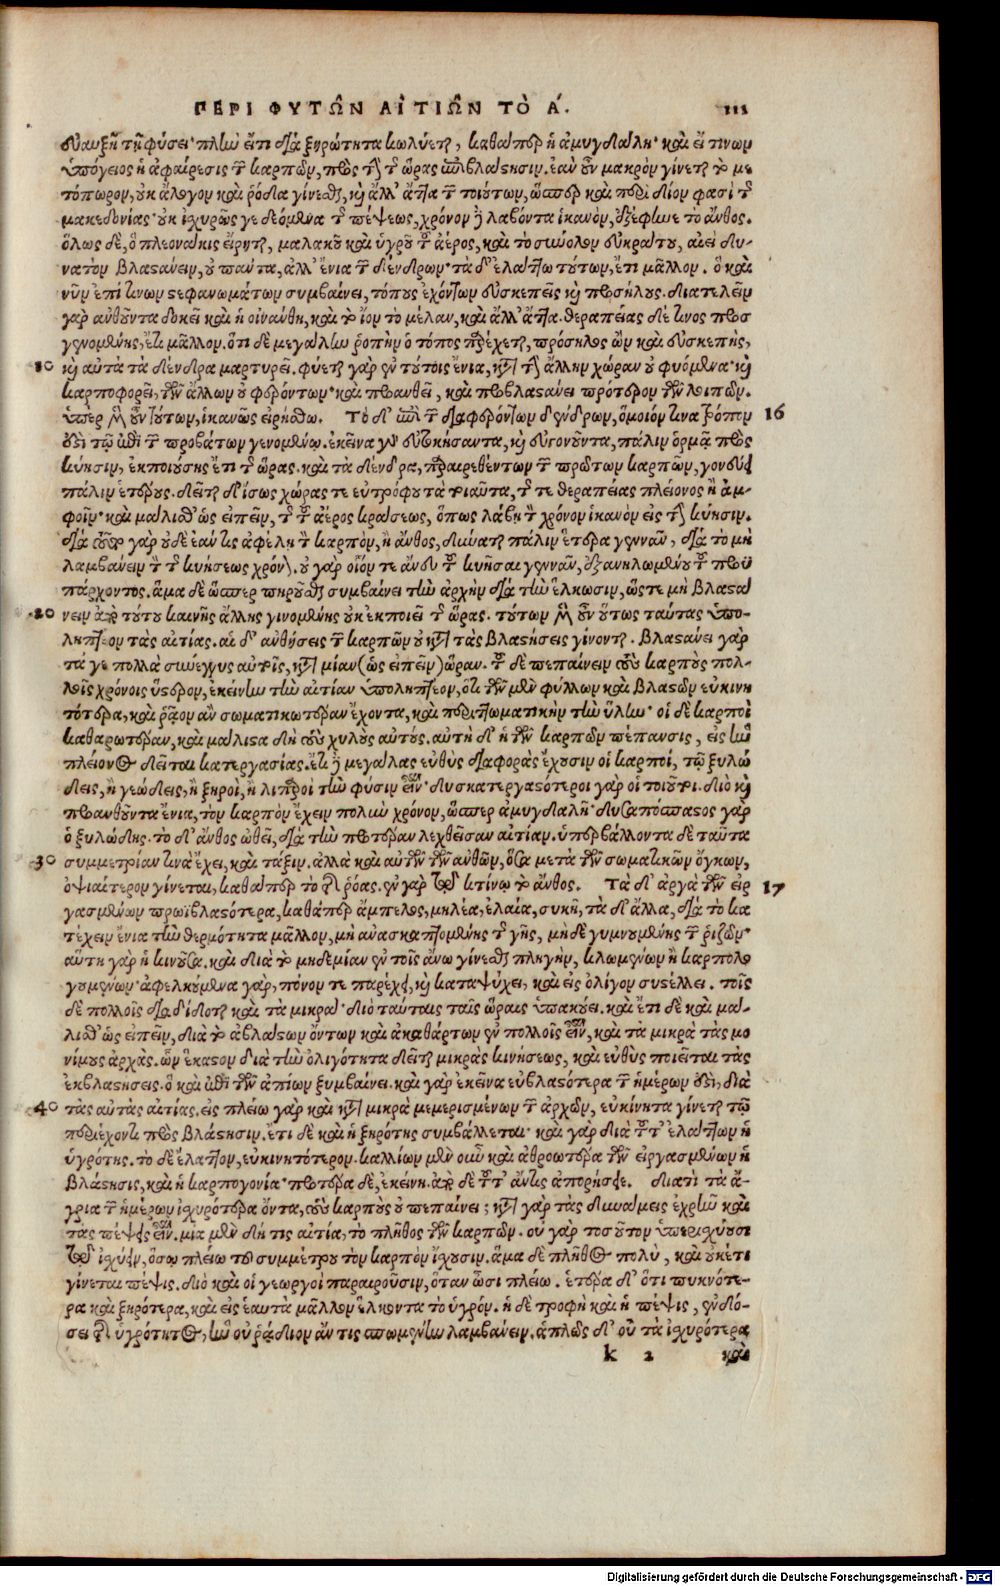 ΠΕΡΙ ΦΥΤΩ͂Ν ΑἸΤΙΩ͂Ν ΤῸ Α΄. 111
εὐαυξῆ τῇ φύσει· πλὴν εἴ τι διὰ ξηρότητα κωλύεται, καθάπερ ἡ ἀμυγδαλῆ· καὶ εἴ τινων
ὑπόγειος ἡ ἀφαίρεσις τῶν καρπῶν, πρὸς τὴν τῆς ὥρας ἐπιβλάστησιν. ἐὰν οὖν μακρὸν γίνεται τὸ με
τόπωρον, οὐκ ἄλογον καὶ ῥόδια γίνεσθαι, καὶ ἄλλ' ἄττα τῶν τοιούτων, ὥσπερ καὶ περὶ δῖον φασὶ τῆς
μακεδονίας· οὐκ ἰσχυρῶς γε δεόμενα τῆς πέψεως, χρόνον δὲ λαβόντα ἱκανὸν, ἐξέφηνε τὸ ἄνθος.
ὅλως δὲ, ὃ πλεονάκις εἴρηται, μαλακοῦ καὶ ὑγροῦ τοῦ ἀέρος, καὶ τὸ σύνολον εὐκράτου, αἰεὶ δυ-
νατὸν βλαστάνειν, οὐ πάντα, ἀλλ' ἔνια τῶν δένδρων· τὰ δ' ἐλάττω τούτων, ἔτι μᾶλλον. ὃ καὶ
νῦν ἐπί τινων στεφανωμάτων συμβαίνει, τόπους ἐχόντων εὐσκεπεῖς καὶ προσήλους. διατελεῖν
γὰρ ἀνθοῦντα δοκεῖ καὶ ἡ οἰνάνθη, καὶ τὸ ἴον τὸ μέλαν, καὶ ἄλλ' ἄττα. θεραπείας δέ τινος προσ
γενομένης, ἔτι μᾶλλον. ὅτι δὲ μεγάλην ῥοπὴν ὁ τόπος παρέχεται, πρόσηλος ὢν καὶ εὐσκεπὴς,
10 καὶ αὐτὰ τὰ δένδρα μαρτυρεῖ. φύεται γὰρ ἐν τούτοις ἔνια, κατὰ τὴν ἄλλην χώραν οὐ φυόμενα· καὶ
καρποφορεῖ, τῶν ἄλλων οὐ φερόντων· καὶ προανθεῖ, καὶ προβλαστάνει πρότερον τῶν λοιπῶν.
ὑπὲρ μὲν οὖν τούτων, ἱκανῶς εἰρήσθω. Τὸ δ' ἐπὶ τῶν διαφερόντων δένδρων, ὅμοιόν τινα τρόπον 16
ἐστὶ τῷ ἐπὶ τῶν προβάτων γενομένῳ. ἐκεῖνα γὰρ εὐθηνήσαντα, καὶ εὐγονοῦντα, πάλιν ὁρμᾷ πρὸς
κύησιν, ἐκποιούσης ἔτι τῆς ὥρας. καὶ τὰ δένδρα, παραιρεθέντων τῶν πρώτων καρπῶν, γονεύει
πάλιν ἑτέρους. δεῖται δ' ἴσως χώρας τε εὐτρόφου τὰ τοιαῦτα, τῆς τε θεραπείας πλείονος ἢ ἀμ-
φοῖν· καὶ μάλισθ' ὡς εἰπεῖν, τῆς τοῦ ἀέρος κράσεως, ὅπως λάβῃ τὸν χρόνον ἱκανὸν εἰς τὴν κύησιν.
διὰ τοῦτο γὰρ οὐδὲ ἐάν τις ἀφέλῃ τὸν καρπὸν, ἢ ἄνθος, δύναται πάλιν ἕτερα γεννᾶν, διὰ τὸ μὴ
λαμβάνειν τὸν τῆς κυήσεως χρόνον. οὐ γὰρ οἷόν τε ἄνευ τοῦ κυῆσαι γεννᾶν, ἐξανηλωμένου τοῦ προϋ
πάρχοντος. ἅμα δὲ ὥσπερ πηροῦσθαι συμβαίνει τὴν ἀρχὴν διὰ τὴν ἕλκωσιν, ὥστε μὴ βλαστά
20 νειν παρὰ τούτου καινῆς ἄλλης γινομένης οὐκ ἐκποιεῖ τῆς ὥρας. τούτων μὲν οὖν οὕτως ταύτας ὑπο-
ληπτέον τὰς αἰτίας. αἱ δ' ἀνθήσεις τῶν καρπῶν οὐ κατὰ τὰς βλαστήσεις γίνονται. βλαστάνει γὰρ
τά γε πολλὰ σύνεγγυς αὐτοῖς, κατὰ μίαν (ὡς εἰπεῖν) ὥραν. τοῦ δὲ πεπαίνειν τοὺς καρποὺς πολ-
λοῖς χρόνοις ὕστερον, ἐκείνην τὴν αἰτίαν ὑποληπτέον, ὅτι τῶν μὲν φύλλων καὶ βλαστῶν εὐκινη
τότερα, καὶ ῥᾷον ἂν σωματικωτέραν ἔχοντα, καὶ περιττωματικὴν τὴν ὕλην· οἱ δὲ καρποὶ
καθαρωτέραν, καὶ μάλιστα δὴ τοὺς χυλοὺς αὐτούς. αὐτὴ δ' ἡ τῶν καρπῶν πέπανσις, εἰς ἣν
πλείονος δεῖται κατεργασίας. ἔτι δὲ μεγάλας εὐθὺς διαφορὰς ἔχουσιν οἱ καρποὶ, τῷ ξυλώ
δεις, ἢ γεώδεις, ἢ ξηροὶ, ἢ λιπαροὶ τὴν φύσιν εἶναι· δυσκατεργαστότεροι γὰρ οἱ τοιοῦτοι. διὸ καὶ
προανθοῦντα ἔνια, τὸν καρπὸν ἔχειν πολὺν χρόνον, ὥσπερ ἀμυγδαλῆ· δυσαπόσπαστος γὰρ
ὁ ξυλώδης. τὸ δ' ἄνθος ὠθεῖ, διὰ τὴν προτέραν λεχθεῖσαν αἰτίαν. ὑπερβάλλοντα δὲ ταῦτα
30 συμμετρίαν τινὰ ἔχει, καὶ τάξιν. ἀλλὰ καὶ αὐτῶν τῶν ἀνθῶν, ὅσα μετὰ τῶν σωματικῶν ὄγκων,
ὀψιαίτερον γίνεται, καθάπερ τὸ τῆς ῥόας. ἐν γὰρ τῷ κυτίνῳ τὸ ἄνθος. Τὰ δ' ἀργὰ τῶν εἰρ 17
γασμένων πρωϊβλαστότερα, καθάπερ ἄμπελος, μηλέα, ἐλαία, συκῆ, τὰ δ' ἄλλα, διὰ τὸ κα
τέχειν ἔνια τὴν θερμότητα μᾶλλον, μὴ ἀνασκαπτομένης τῆς γῆς, μηδὲ γυμνουμένης τῶν ῥιζῶν·
αὕτη γὰρ ἡ κινοῦσα. καὶ διὰ τὸ μηδεμίαν ἐν τοῖς ἄνω γίνεσθαι πληγὴν, κλωμένων ἢ καρπολο
γουμένων· ἀφελκούμενα γὰρ, πόνον τε παρέχει, καὶ καταψύχει, καὶ εἰς ὀλίγον συστέλλει. τοῖς
δὲ πολλοῖς διαδίδοται καὶ τὰ μικρά· διὸ ταύταις ταῖς ὥραις ὑπακούει. καὶ ἔτι δὲ καὶ μά-
λισθ' ὡς εἰπεῖν, διὰ τὸ ἀβλάστων ὄντων καὶ ἀκαθάρτων ἐν πολλοῖς εἶναι, καὶ τὰ μικρὰ τὰς μο
νίμους ἀρχάς. ὧν ἕκαστον διὰ τὴν ὀλιγότητα δεῖται μικρᾶς κινήσεως, καὶ εὐθὺς ποιεῖται τὰς
ἐκβλαστήσεις. ὃ καὶ ἐπὶ τῶν ἀπίων ξυμβαίνει. καὶ γὰρ ἐκεῖνα εὐβλαστότερα τῶν ἡμέρων ἐστὶ, διὰ
40 τὰς αὐτὰς αἰτίας. εἰς πλείω γὰρ καὶ κατὰ μικρὰ μεμερισμένων τῶν ἀρχῶν, εὐκίνητα γίνεται τῷ
περιέχοντι πρὸς βλάστησιν. ἔτι δὲ καὶ ἡ ξηρότης συμβάλλεται· καὶ γὰρ διὰ τοῦτ' ἐλάττων ἡ
ὑγρότης. τὸ δὲ ἔλαττον, εὐκινητότερον. καλλίων μὲν οὖν καὶ ἀθροωτέρα τῶν εἰργασμένων ἡ
βλάστησις, καὶ ἡ καρπογονία· προτέρα δὲ, ἐκείνη. παρὰ δὲ τοῦτ' ἄν τις ἀπορήσειε. διατὶ τὰ ἄ-
γρια τῶν ἡμέρων ἰσχυρότερα ὄντα, τοὺς καρποὺς οὐ πεπαίνει; κατὰ γὰρ τὰς δυνάμεις ἐχρῆν καὶ
τὰς πέψεις εἶναι. μία μὲν δή τις αἰτία, τὸ πλῆθος τῶν καρπῶν. οὐ γὰρ τοσοῦτον ὑπερισχύουσι
τῷ ἰσχύειν, ὅσῳ πλείω τοῦ συμμέτρου τὸν καρπὸν ἴσχουσιν. ἅμα δὲ πλῆθος πολὺ, καὶ οὐκέτι
γίνεται πέψις. διὸ καὶ οἱ γεωργοὶ παραιροῦσιν, ὅταν ὦσι πλείω. ἑτέρα δ' ὅτι πυκνότε-
ρα καὶ ξηρότερα, καὶ εἰς ἑαυτὰ μᾶλλον ἕλκοντα τὸ ὑγρόν. ἡ δὲ τροφὴ καὶ ἡ πέψις, ἐνδό-
σει τῆς ὑγρότητος, ἣν οὐ ῥᾴδιον ἄν τις ὑπομένῃ λαμβάνειν. ἁπλῶς δ' οὖν τὰ ἰσχυρότερα
k 2 καὶ
Digitalisierung gefördert durch die Deutsche Forschungsgemeinschaft - DFG